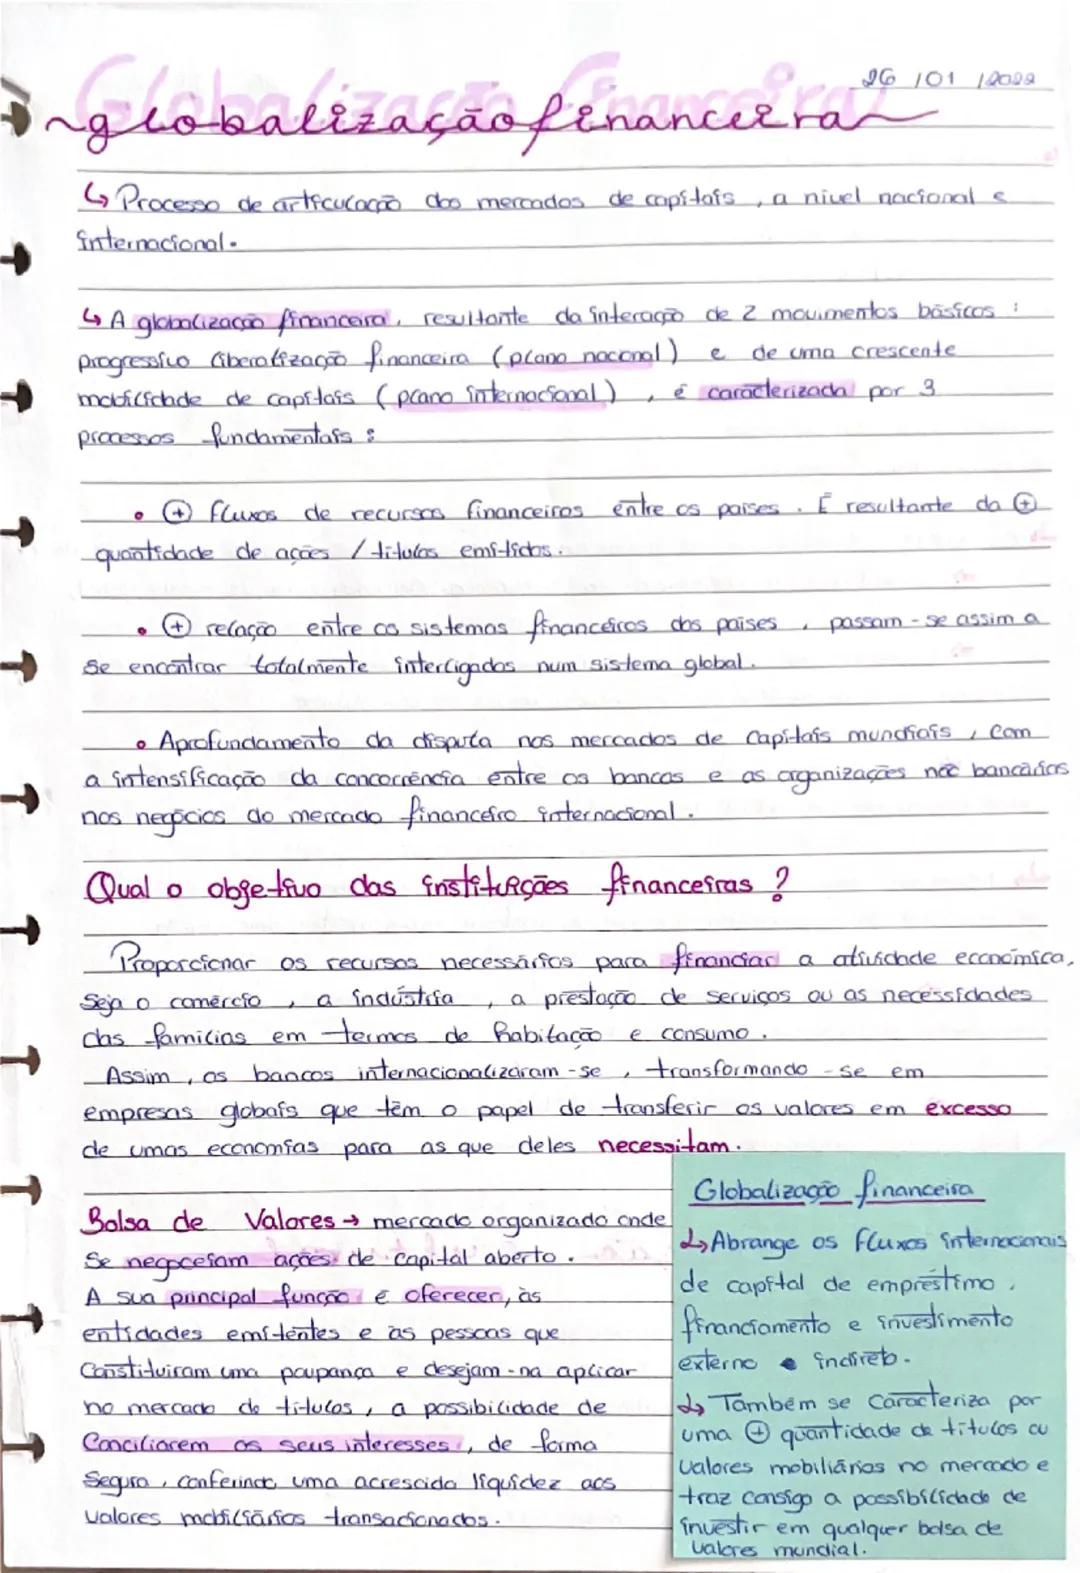 26/01/2022
~globalização financeira~
↳ Processo de articulação dos mercados de capitais, a nivel nacional e
internacional.
↳ A globalização financeira, resultante da interação de 2 movimentos básicos :
progressivo liberalização financeira (plano nacional) e de uma crescente
mobilidade de capitais (plano internacional), é caracterizada por 3
processos fundamentais :
• ⊕ fluxos de recursos financeiros entre os paises. É resultante da ⊕
quantidade de ações / titulos emitidos.
• ⊕ relação entre os sistemas financeiros dos paises, passam-se assim a
se encontrar totalmente interligados num sistema global.
• Aprofundamento da disputa nos mercados de capitais mundiais, com
a intensificação da concorrência entre os bancos e as organizações não bancárias
nos negócios do mercado financeiro internacional.
Qual o objetivo das instituições financeiras ?
Proporcionar os recursos necessários para financiar a atividade económica,
seja o comércio, a indústria, a prestação de serviços ou as necessidades
das familias em termos de habitação e consumo.
Assim, os bancos internacionalizaram-se, transformando-se em
empresas globais que têm o papel de transferir os valores em excesso
de umas economias para as que deles necessitam.
Bolsa de Valores → mercado organizado onde
se negoceiam ações de capital aberto.
A sua principal função é oferecer, às
entidades emitentes e às pessoas que
constituiram uma poupança e desejam-na aplicar
no mercado de titulos, a possibilidade de
conciliarem os seus interesses, de forma
segura, conferindo uma acrescida liquidez aos
valores mobiliários transacionados.
Globalização financeira
↳ Abrange os fluxos internacionais
de capital de empréstimo,
financiamento e investimento
externo indireto.
↳ Também se caracteriza por
uma ⊕ quantidade de titulos ou
valores mobiliários no mercado e
traz consigo a possibilidade de
investir em qualquer bolsa de
valores mundial.